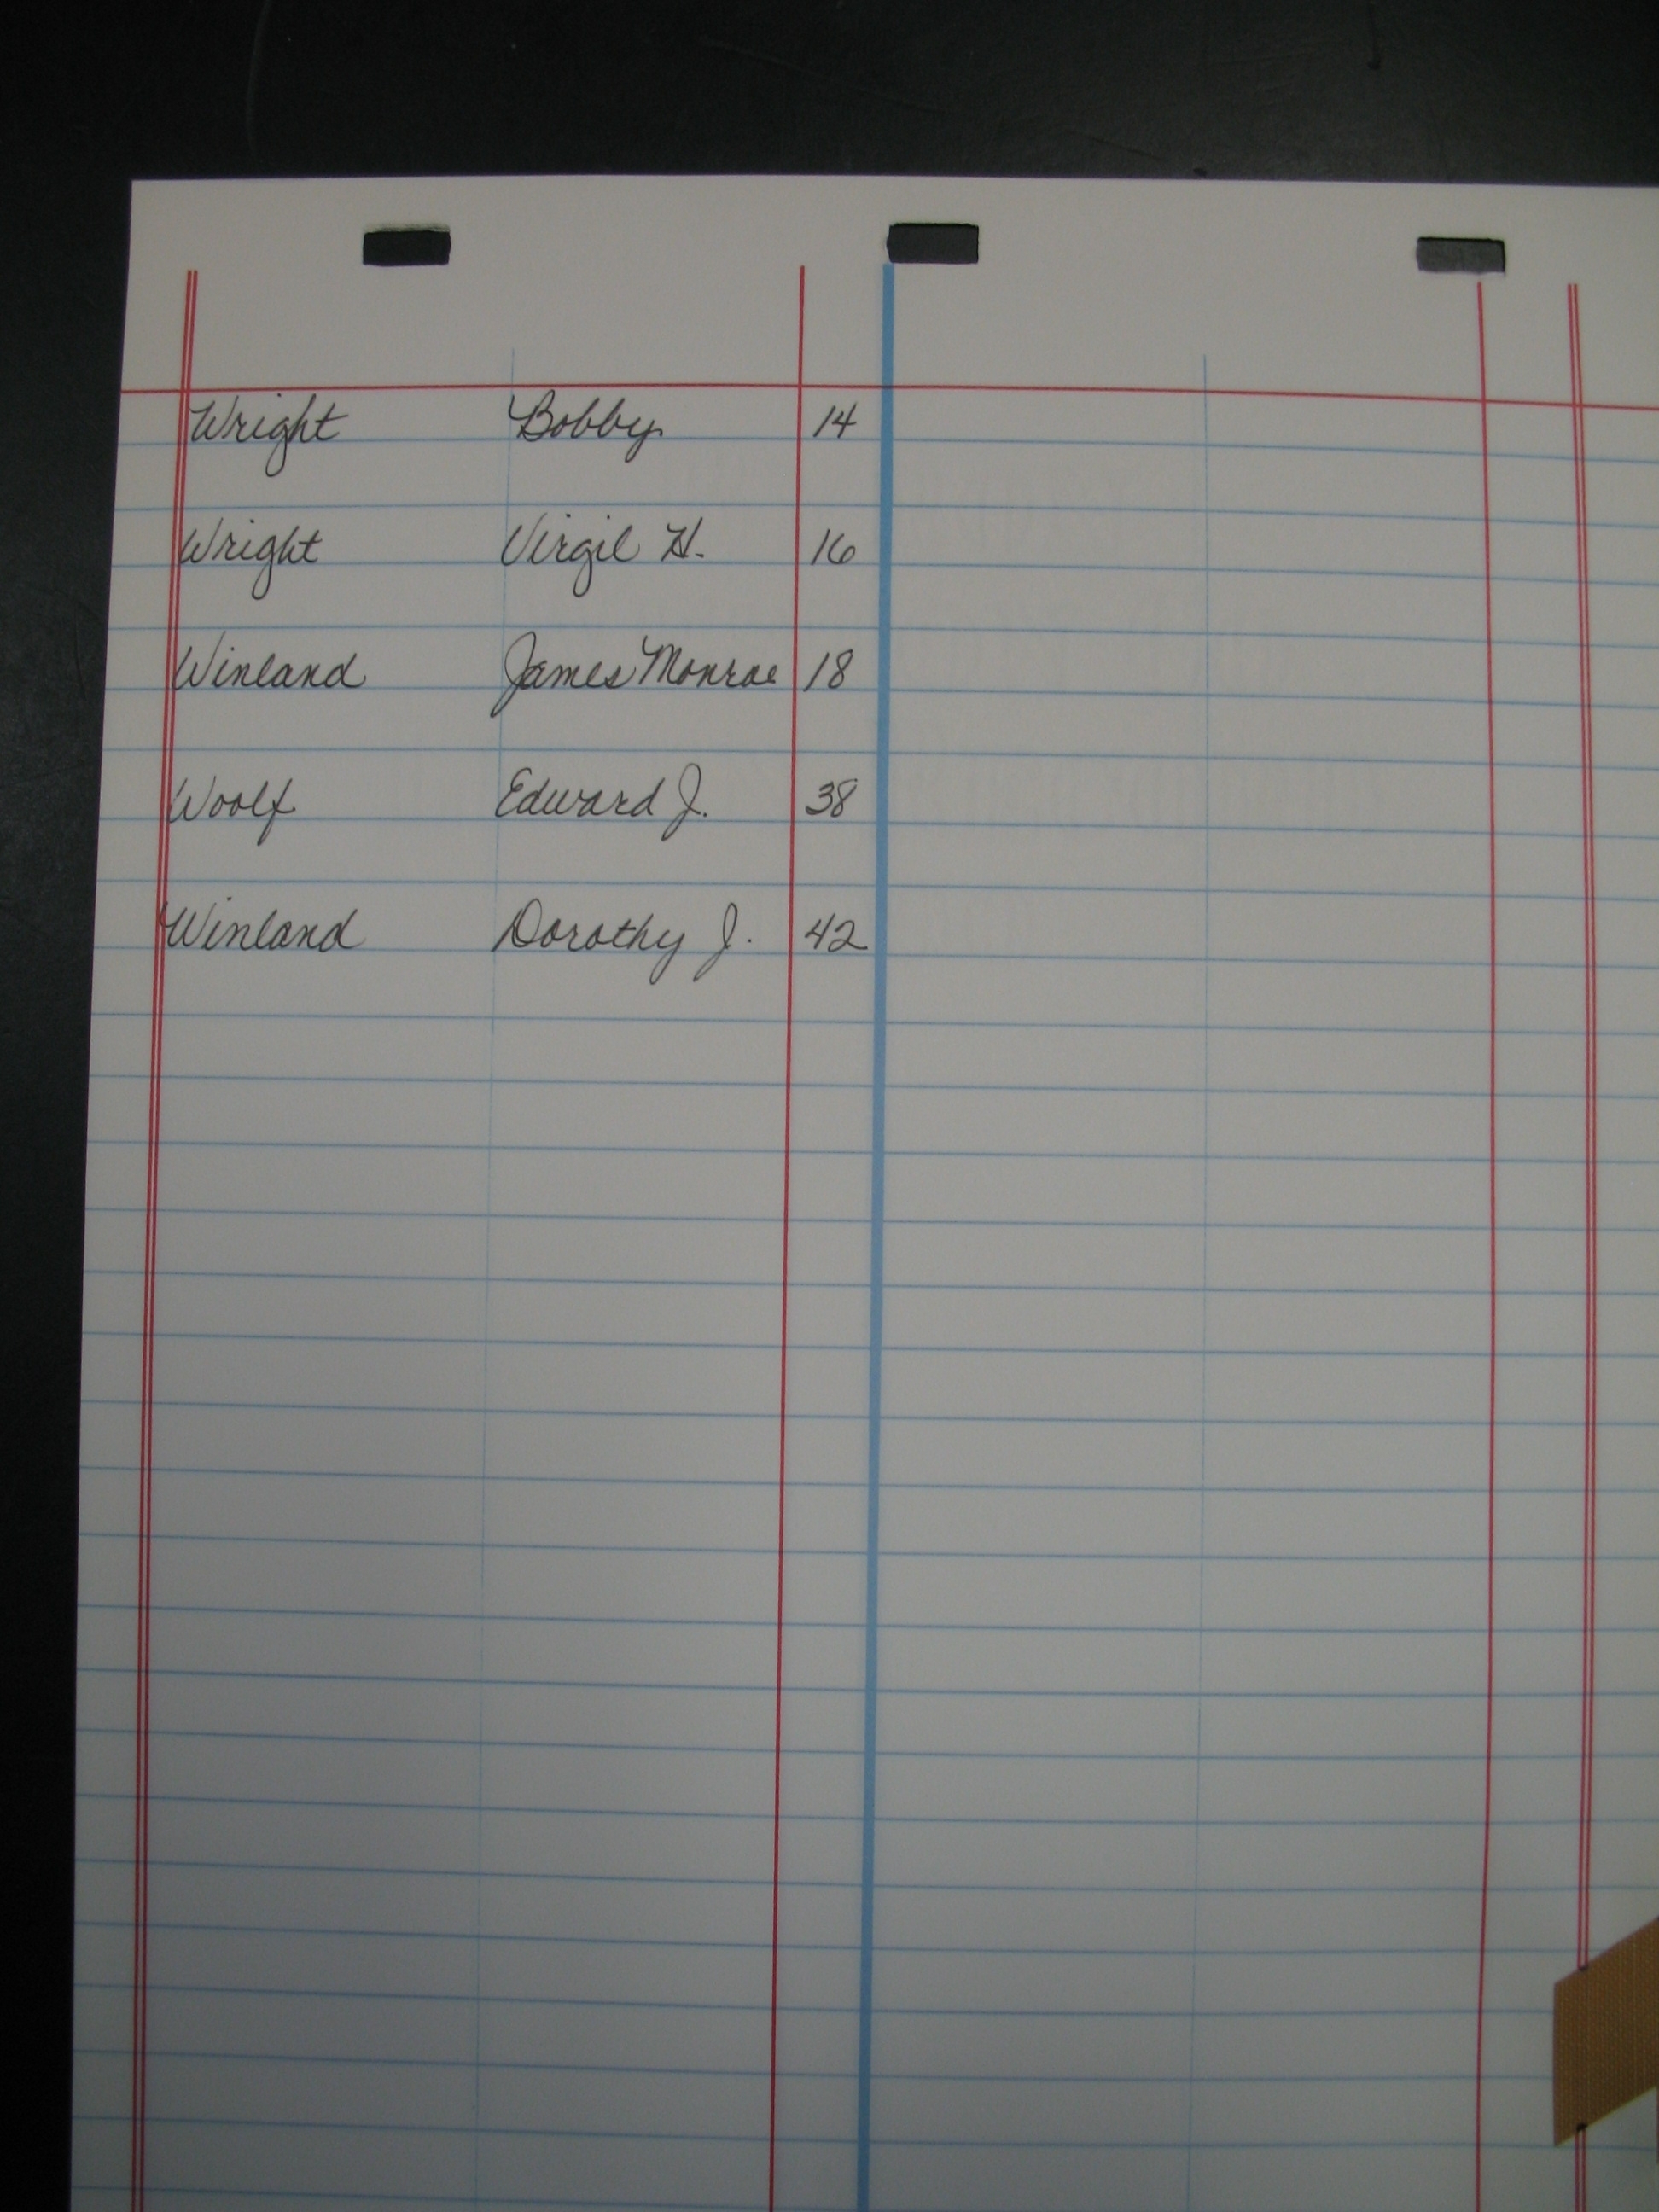 Wright Bobby 14
Wright Virgil H. 16
Winland James Monroe 18
Woolf Edward J. 38
Winland Dorothy J. 42